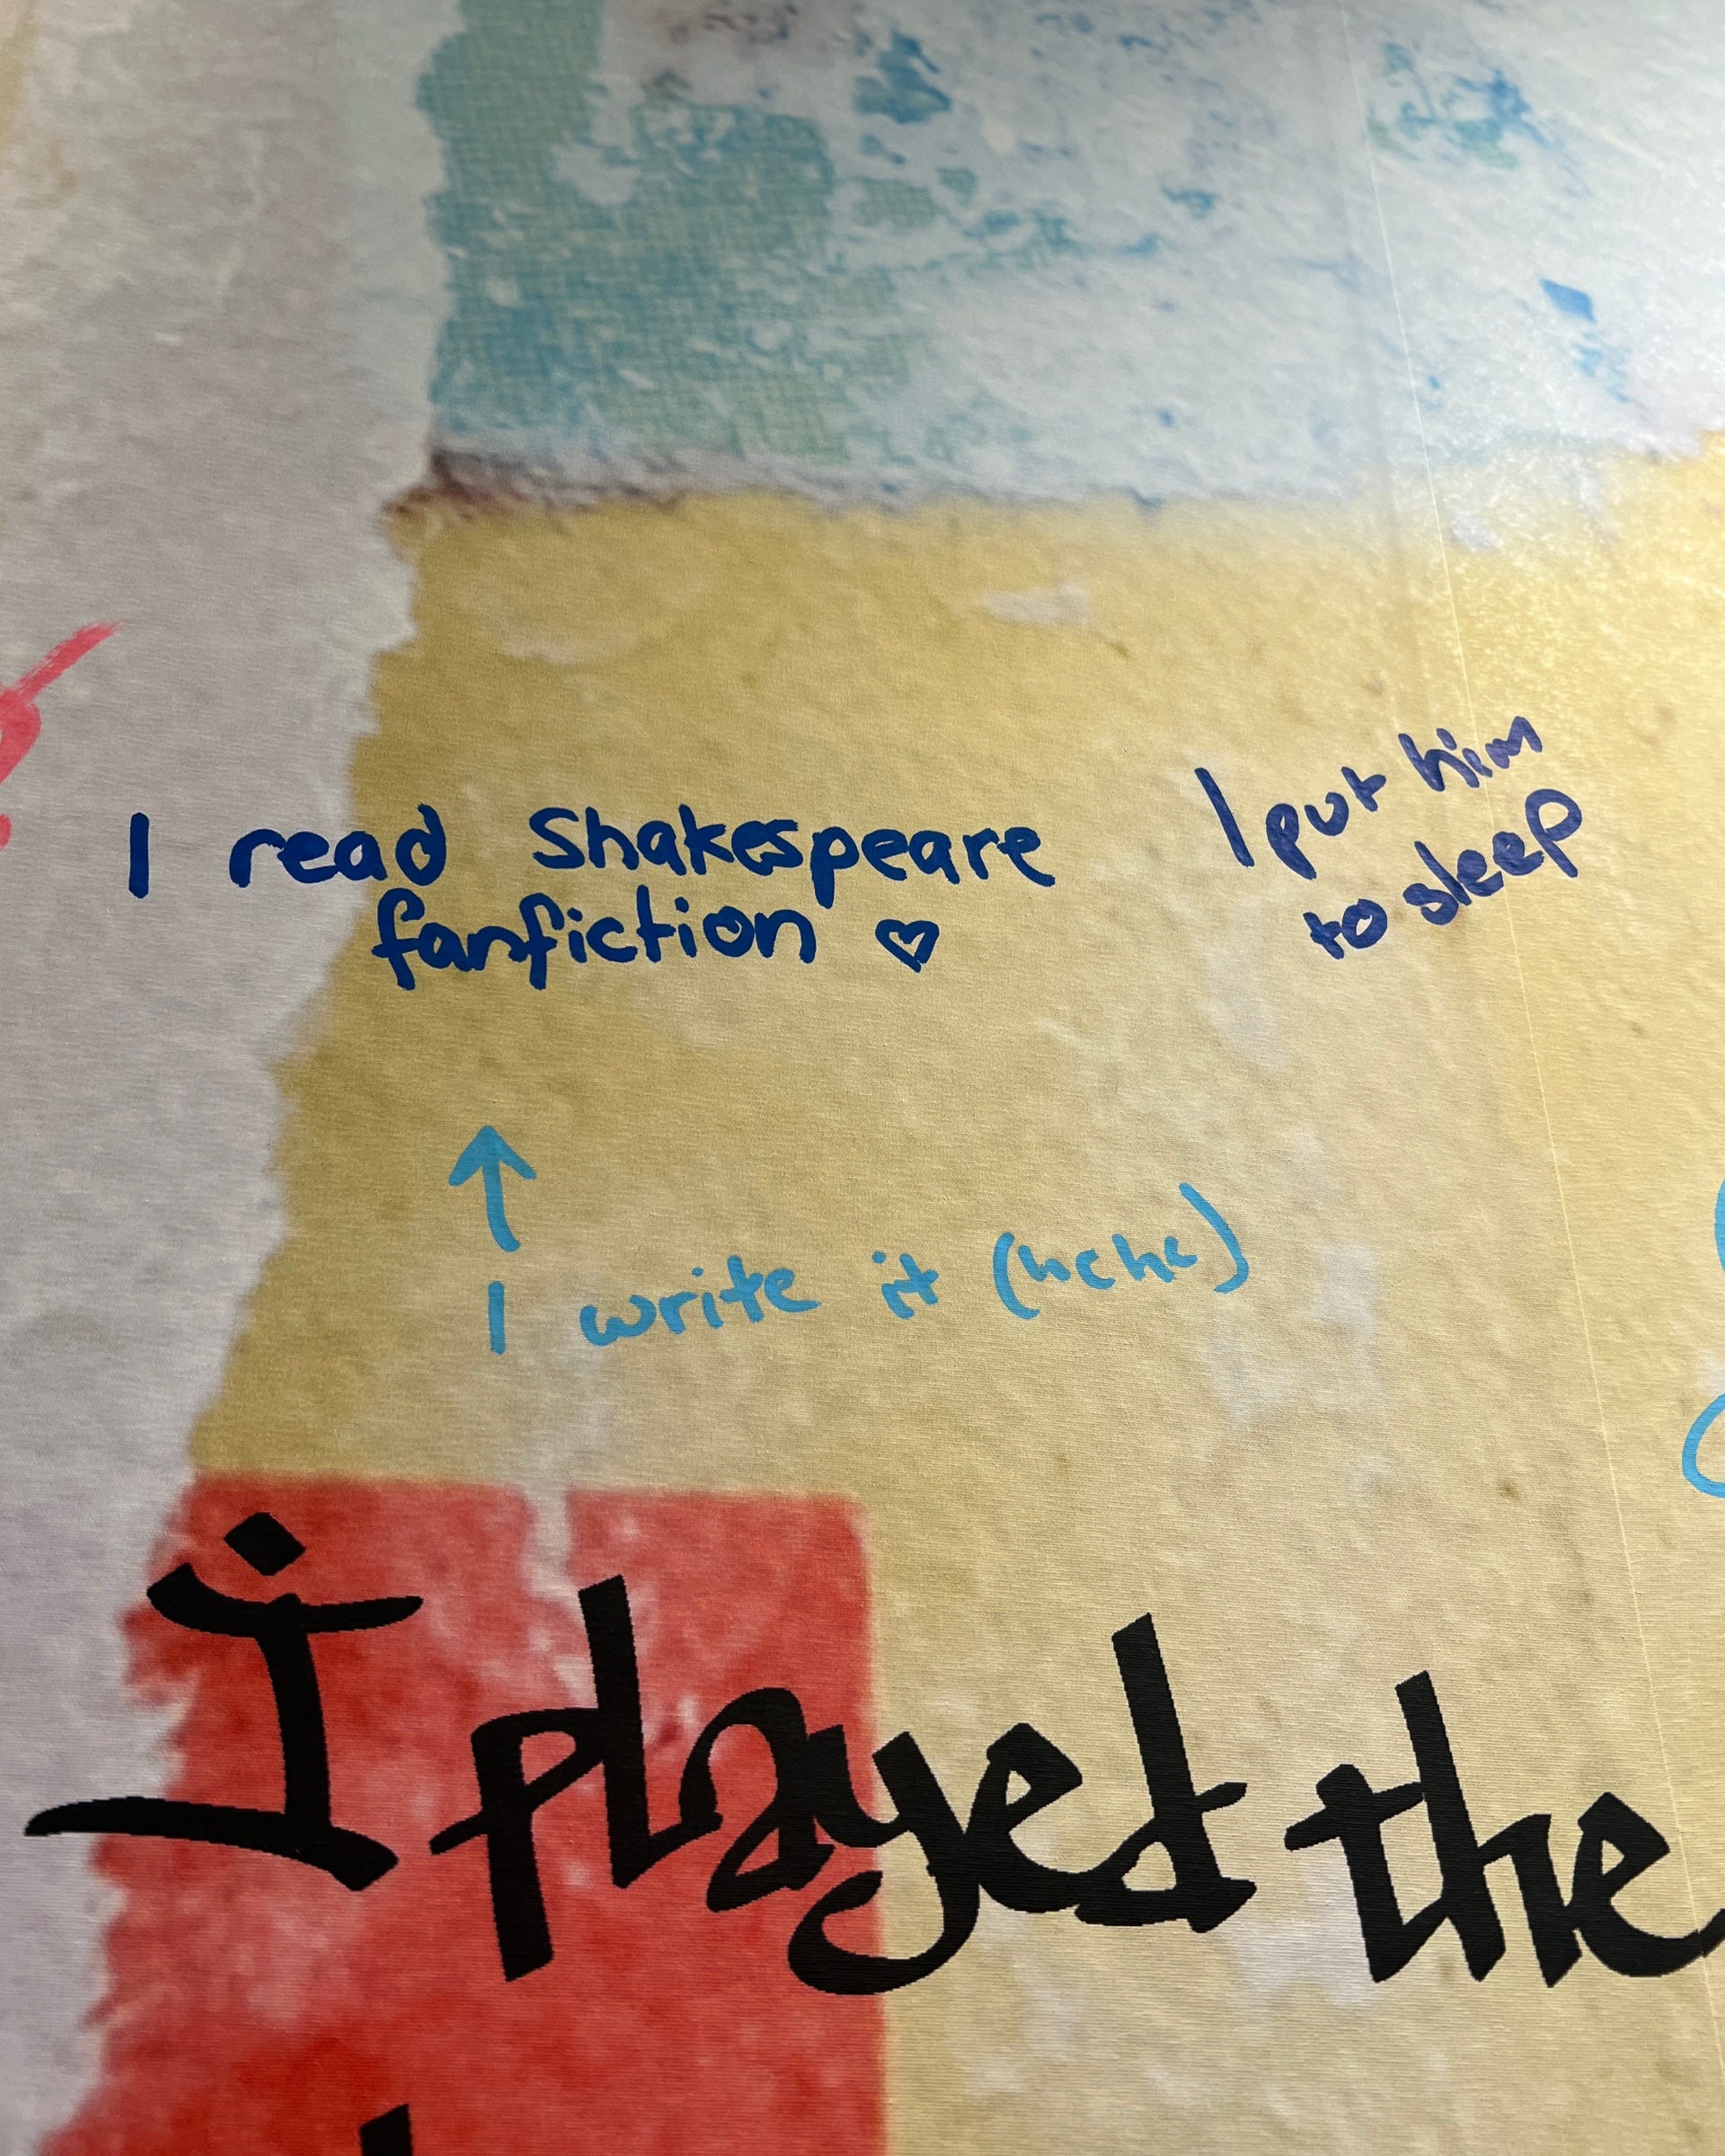 I read Shakespeare
fanfiction ♡
I put him
to sleep
↑
I write it (hehe)
I played the